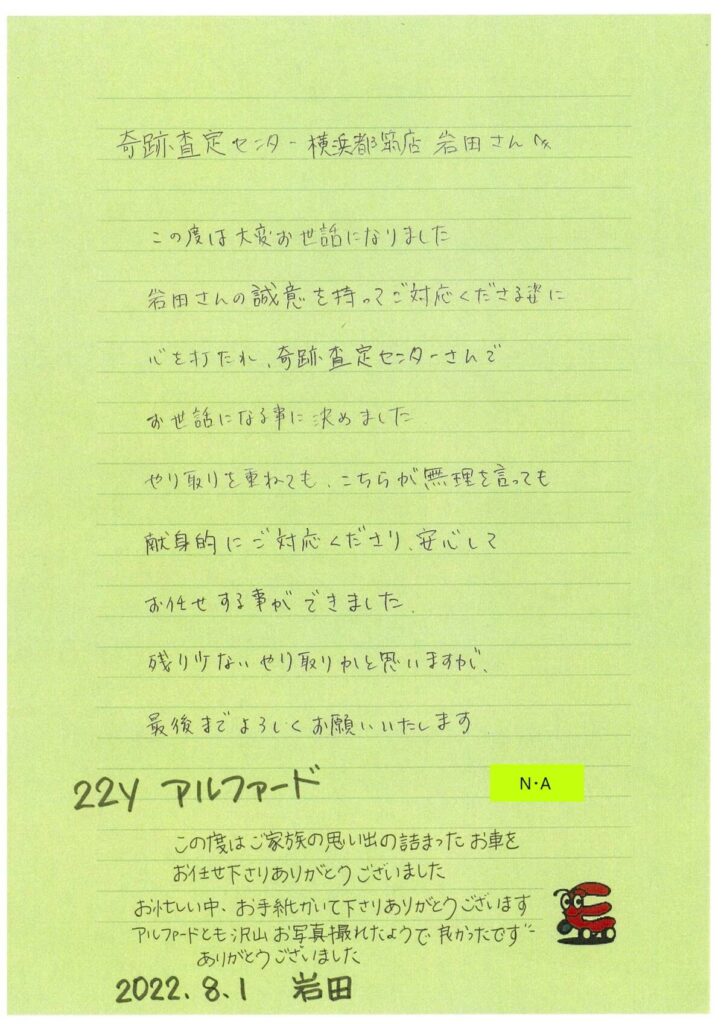 奇跡査定センター横浜都筑店 岩田さんへ
この度は大変お世話になりました
岩田さんの誠意を持ってご対応くださる姿に
心を打たれ、奇跡査定センターさんで
お世話になる事に決めました
やり取りを重ねても、こちらが無理を言っても
献身的にご対応くださり、安心して
お任せする事ができました。
残り少ないやり取りかと思いますが、
最後までよろしくお願いいたします
22y アルファード
N・A
この度はご家族の思い出の詰まったお車を
お任せ下さりありがとうございました
お忙しい中、お手紙かいて下さりありがとうございます
アルファードとも沢山お写真撮れたようで良かったです
ありがとうございました
2022.8.1 岩田